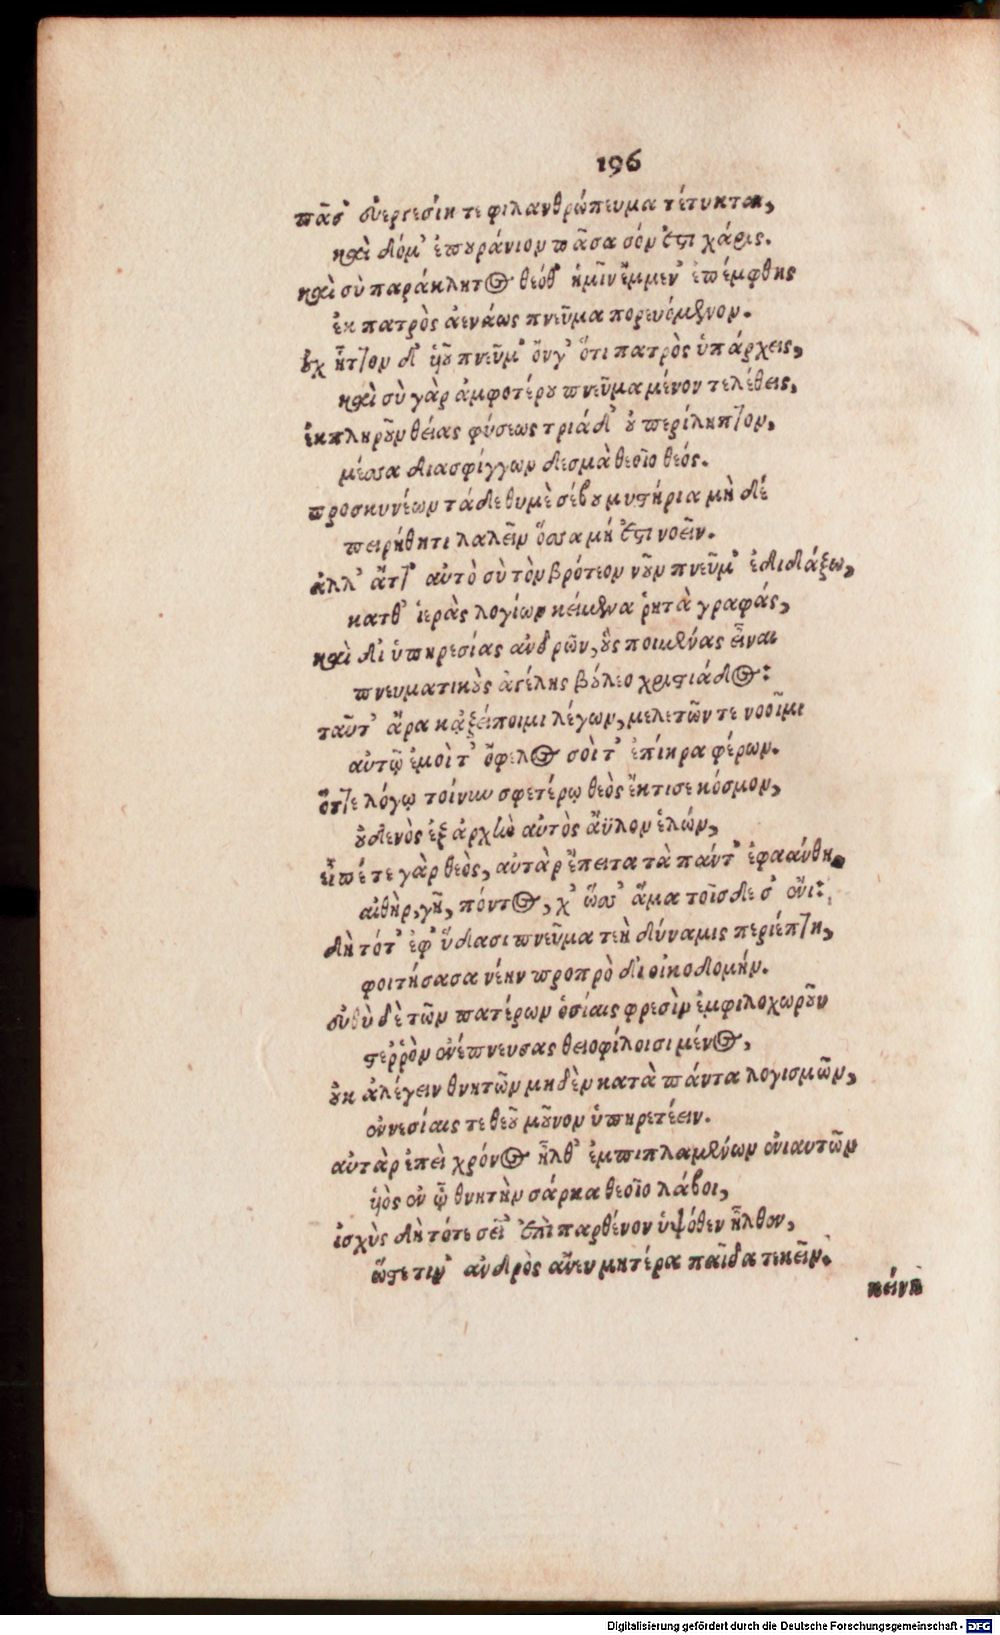 196
πᾶσ᾽ εὐεργεσίη τε φιλανθρώπευμα τέτυκται,
καὶ δόμ᾽ ἐπουράνιον πᾶσα σόν ἐστι χάρις.
καὶ σὺ παράκλητος θεόθ᾽ ἡμῖν ἔμμεν᾽ ἐπέμφθης
ἐκ πατρὸς ἀενάως πνεῦμα πορευόμενον.
οὐχ ἧττον δ᾽ ὑοῦ πνεῦμ᾽ ὄνγ᾽ ὅτι πατρὸς ὑπάρχεις,
καὶ σὺ γὰρ ἀμφοτέρου πνεῦμα μένον τελέθεις,
ἐκπληροῦν θείας φύσεως τριάδ᾽ οὐ περίληπτον,
μέσσα διασφίγγων δεσμὰ θεοῖο θεός.
προσκυνέων τάδε θυμὲ σέβου μυστήρια μὴ δέ
πειρήθητι λαλεῖν ὅσσα μή ἐστι νοεῖν.
ἀλλ᾽ ἅττ᾽ αὐτὸ σὺ τὸν βρότεον νοῦν πνεῦμ᾽ ἐδιδάξω,
κατθ᾽ ἱερὰς λογίων κείμενα ῥητὰ γραφάς,
καὶ δι ὑπηρεσίας ἀνδρῶν, οὓς ποιμένας εἶναι
πνευματικοὺς ἀγέλης βούλεο χριστιάδος:
ταῦτ᾽ ἄρα κἀξείποιμι λέγων, μελετῶν τε νοοῖμι
αὐτῷ ἐμοὶ τ᾽ ὄφελος σοὶ τ᾽ ἐπίκρα φέρων.
ὅττε λόγῳ τοίνυν σφετέρῳ θεὸς ἔκτισε κόσμον,
οὐδενὸς ἐξ ἀρχὴν αὐτὸς ἄϋλον ἑλών,
εἶπέ τε γὰρ θεὸς, αὐτὰρ ἔπειτα τὰ πάντ᾽ ἐφαάνθη
αἰθὴρ, γῆ, πόντος, χ᾽ ὥσσ᾽ ἅμα τοῖσδεσ᾽ ἔνι:
δὴ τότ᾽ ἐφ᾽ ὕδασι πνεῦμα τεὴ δύναμις περιέπτη,
φοιτήσασα νέην προπρὸ δι οἰκοδομήν.
εὐθὺ δὲ τῶν πατέρων ὁσίαις φρεσὶν ἐμφιλοχωροῦν
στεῤῥὸν ἐνέπνευσας θειοφίλοισι μένος,
οὐκ ἀλέγειν θνητῶν μηδὲν κατὰ πάντα λογισμῶν,
ἐννεσίαις τε θεοῦ μοῦνον ὑπηρετέειν.
αὐτὰρ ἐπεὶ χρόνος ἦλθ᾽ ἐμπιπλαμένων ἐνιαυτῶν
ὑὸς ἐν ᾧ θνητὴν σάρκα θεοῖο λάβοι,
ἰσχὺς δὴ τότε σεῖ᾽ ἐπὶ παρθένον ὑψόθεν ἦλθεν,
ὥστε τιν᾽ ἀνδρὸς ἄνευ μητέρα παῖδα τεκεῖν.
κείνη
Digitalisierung gefördert durch die Deutsche Forschungsgemeinschaft - DFG